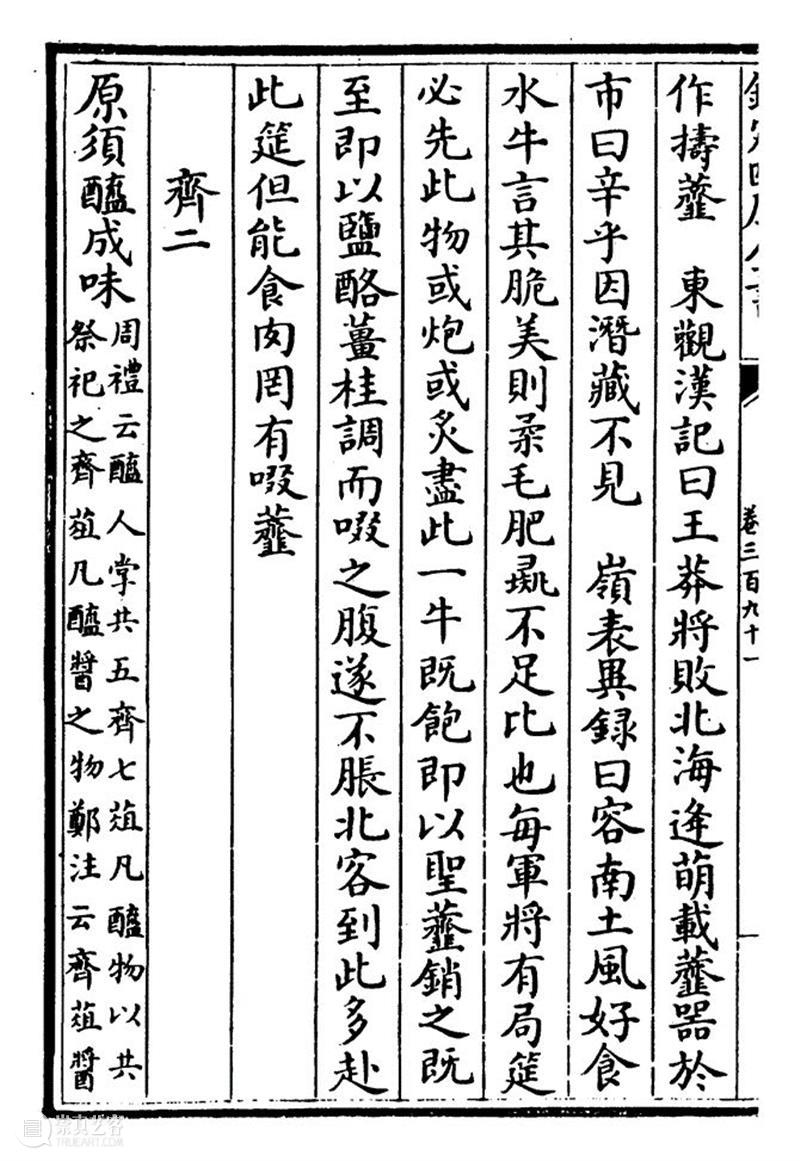 卷三百九十一
作擣虀　東觀漢記曰王莽將敗北海逄萌載虀器於
市曰辛乎因潛藏不見　嶺表異錄曰容南土風好食
水牛言其脆美則柔毛肥彘不足比也每軍將有局筵
必先此物或炮或炙盡此一牛既飽即以聖虀銷之既
至即以鹽酪薑桂調而啜之腹遂不脹北客到此多赴
此筵但能食肉罔有啜虀
齊二
原須醯成味
周禮云醯人掌共五齊七菹凡醯物以共
祭祀之齊菹凡醯醬之物鄭注云齊菹醬
崇真艺客
TRUEART.COM